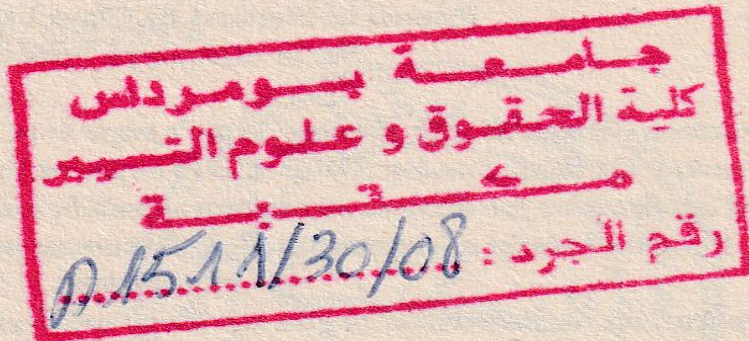 جامعة بومرداس
كلية الحقوق و علوم التسيير
مكتبة
رقم الجرد : A1511/30/08